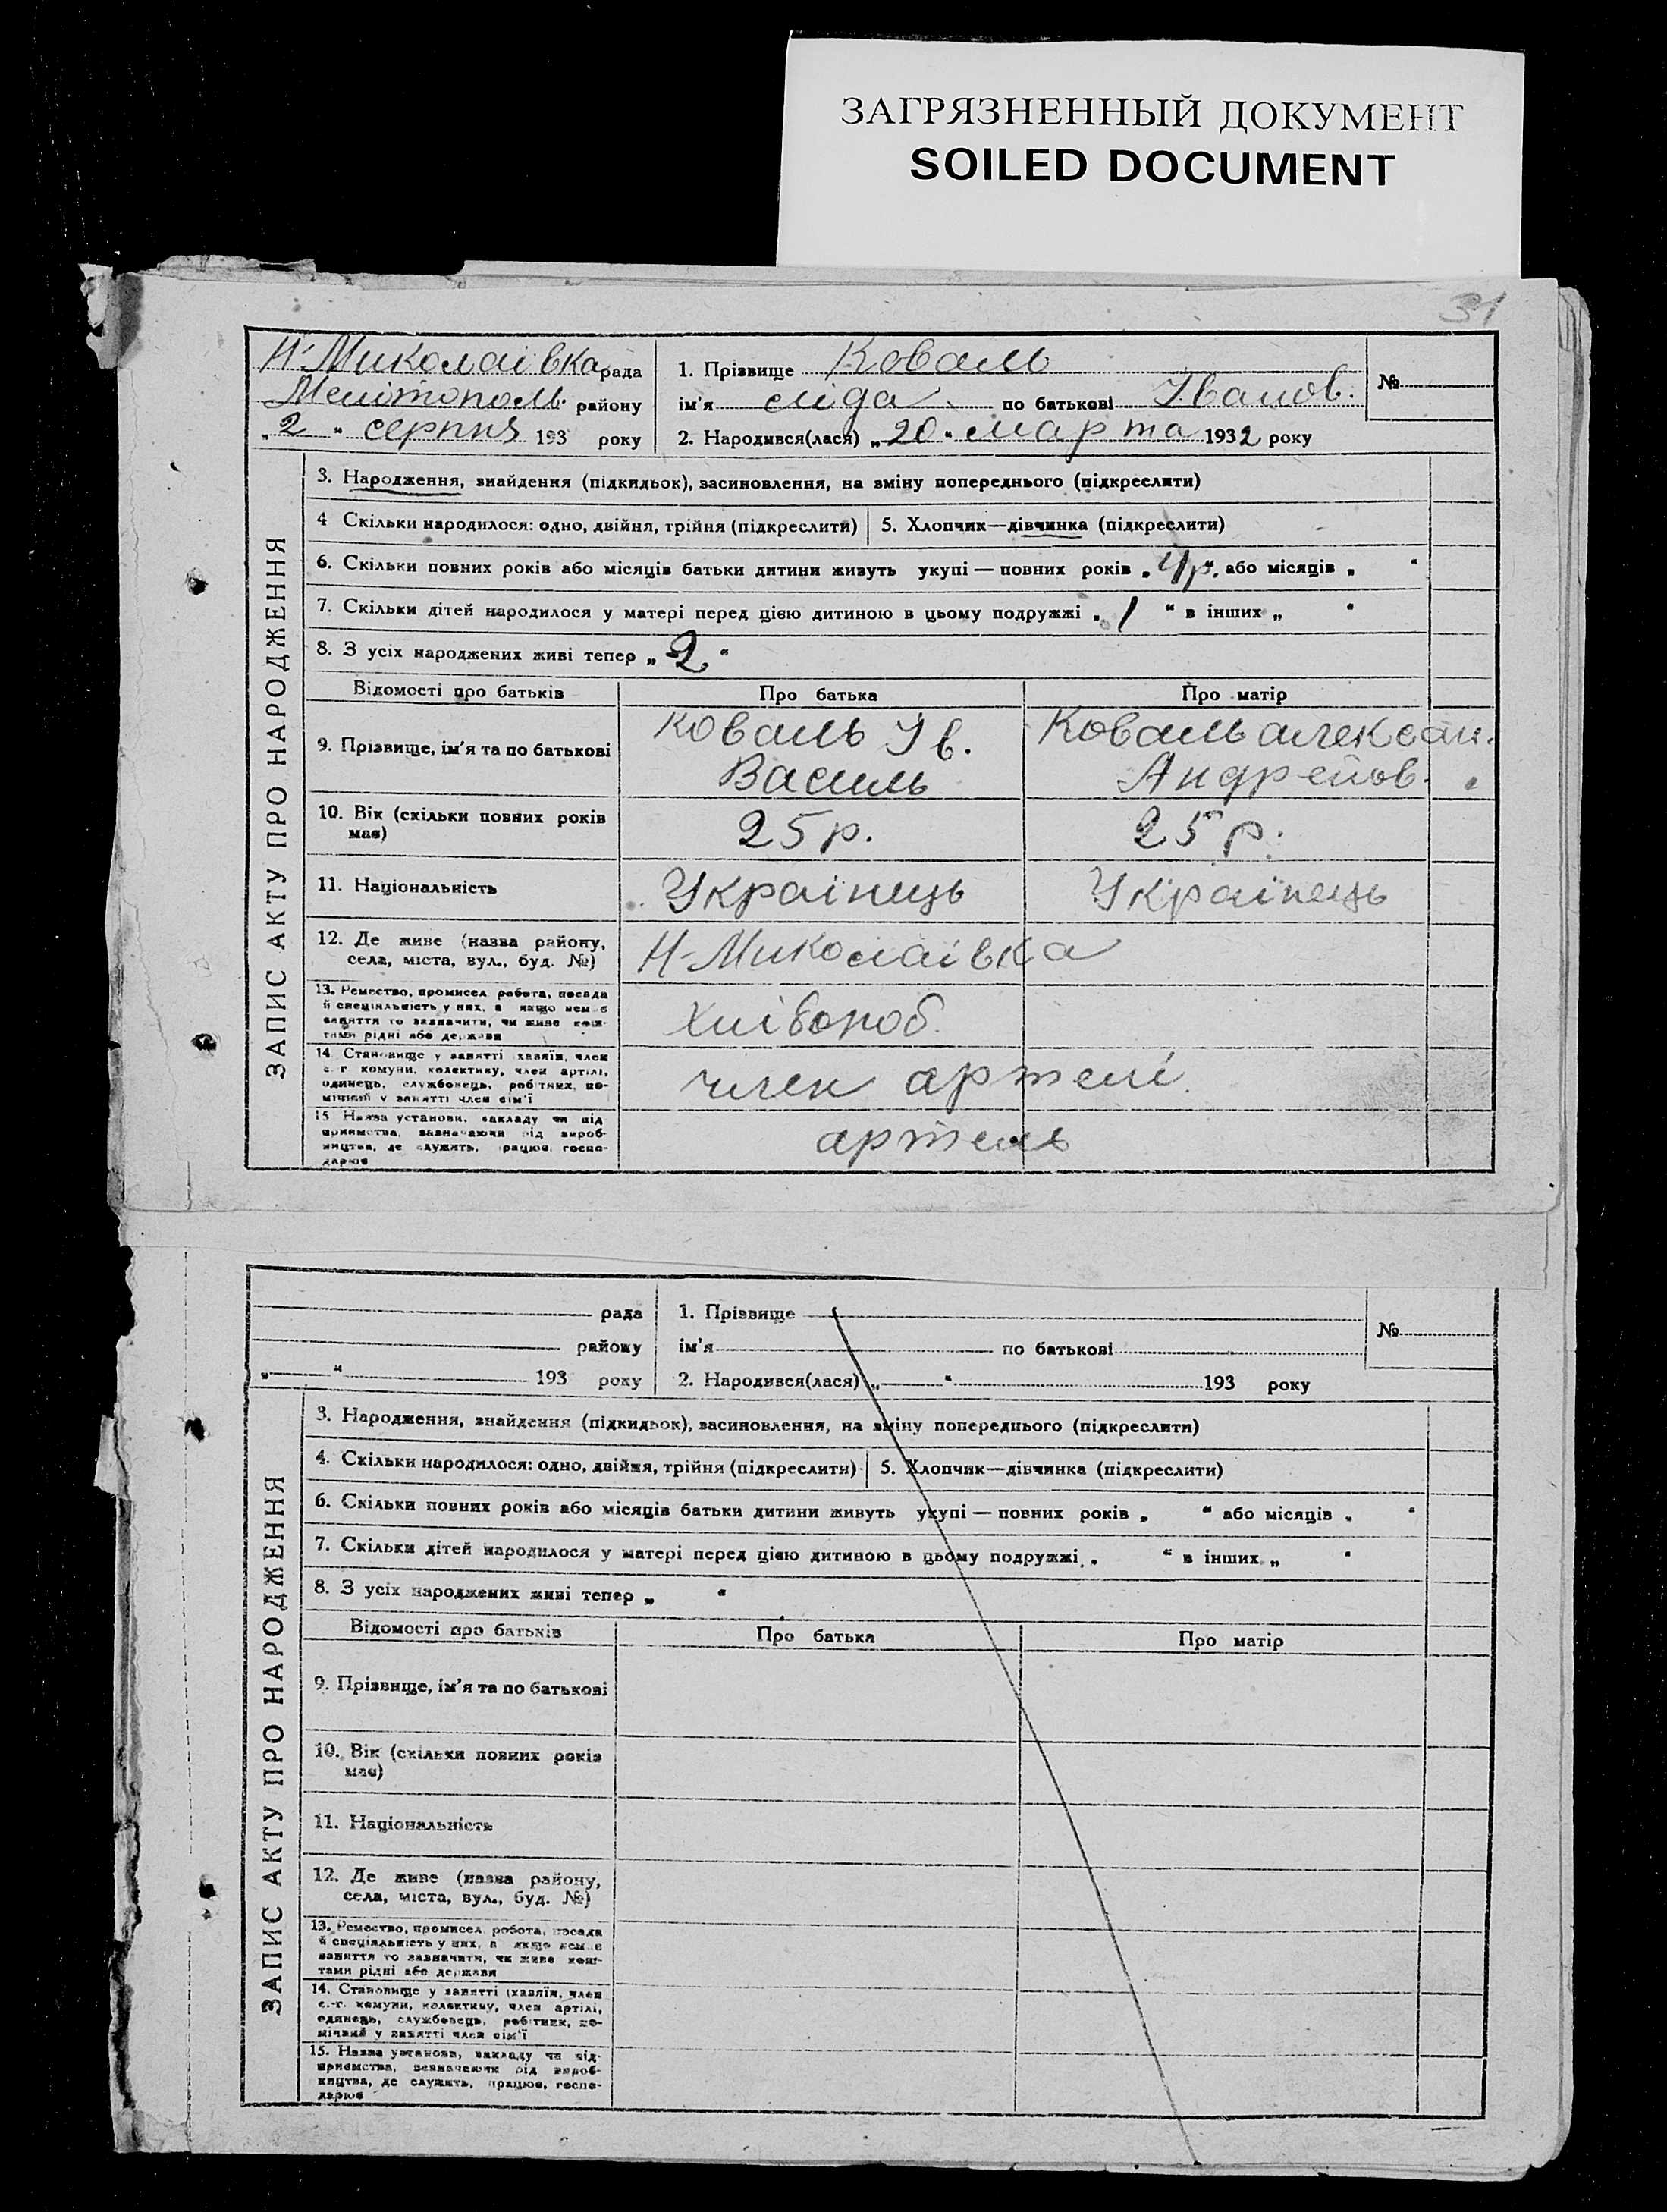 ЗАГРЯЗНЕННЫЙ ДОКУМЕНТ
SOILED DOCUMENT
31
Н-Миколаівка рада
Мелітополь. району
„2" серпня 193 року
1. Прізвище Коваль
ім'я ліда по батькові Іванов.
2. Народився(лася) „20" марта 1932 року
№
ЗАПИС АКТУ ПРО НАРОДЖЕННЯ
3. Народження, знайдення (підкидьок), засиновлення, на зміну попереднього (підкреслити)
4 Скільки народилося: одно, двійня, трійня (підкреслити) 5. Хлопчик—дівчинка (підкреслити)
6. Скільки повних років або місяців батьки дитини живуть укупі — повних років „4р." або місяців „ "
7. Скільки дітей народилося у матері перед цією дитиною в цьому подружжі „1" в інших „ "
8. З усіх народжених живі тепер „2"
Відомості про батьків Про батька Про матір
9. Прізвище, ім'я та по батькові Коваль Ів. Василь Коваль алексан. Андрейов.
10. Вік (скільки повних років має) 25 р. 25 р.
11. Національність Українець Українець
12. Де живе (назва району, села, міста, вул., буд. №) Н-Миколаівка
13. Ремество, промисел, робота, посада й спеціяльність у них, а якщо немає заняття то зазначити, чи живе коштами рідні або держави хліб​ороб.
14. Становище у занятті (хазяїн, член с.-г. комуни, колективу, член артілі, одинець, службовець, робітник, помічний у занятті член сім'ї член артелі.
15. Назва установи, закладу чи підприємства, зазначаючи рід виробництва, де служить, працює, господарює артель
рада
району
„ " 193 року
1. Прізвище
ім'я по батькові
2. Народився(лася) „ " 193 року
№
ЗАПИС АКТУ ПРО НАРОДЖЕННЯ
3. Народження, знайдення (підкидьок), засиновлення, на зміну попереднього (підкреслити)
4. Скільки народилося: одно, двійня, трійня (підкреслити) 5. Хлопчик—дівчинка (підкреслити)
6. Скільки повних років або місяців батьки дитини живуть укупі — повних років „ " або місяців „ "
7. Скільки дітей народилося у матері перед цією дитиною в цьому подружжі „ " в інших „ "
8. З усіх народжених живі тепер „ "
Відомості про батьків Про батька Про матір
9. Прізвище, ім'я та по батькові
10. Вік (скільки повних років має)
11. Національність
12. Де живе (назва району, села, міста, вул., буд. №)
13. Ремество, промисел, робота, посада й спеціяльність у них, а якщо немає заняття то зазначити, чи живе коштами рідні або держави
14. Становище у занятті (хазяїн, член с.-г. комуни, колективу, член артілі, одинець, службовець, робітник, помічний у занятті член сім'ї
15. Назва установи, закладу чи підприємства, зазначаючи рід виробництва, де служить, працює, господарює